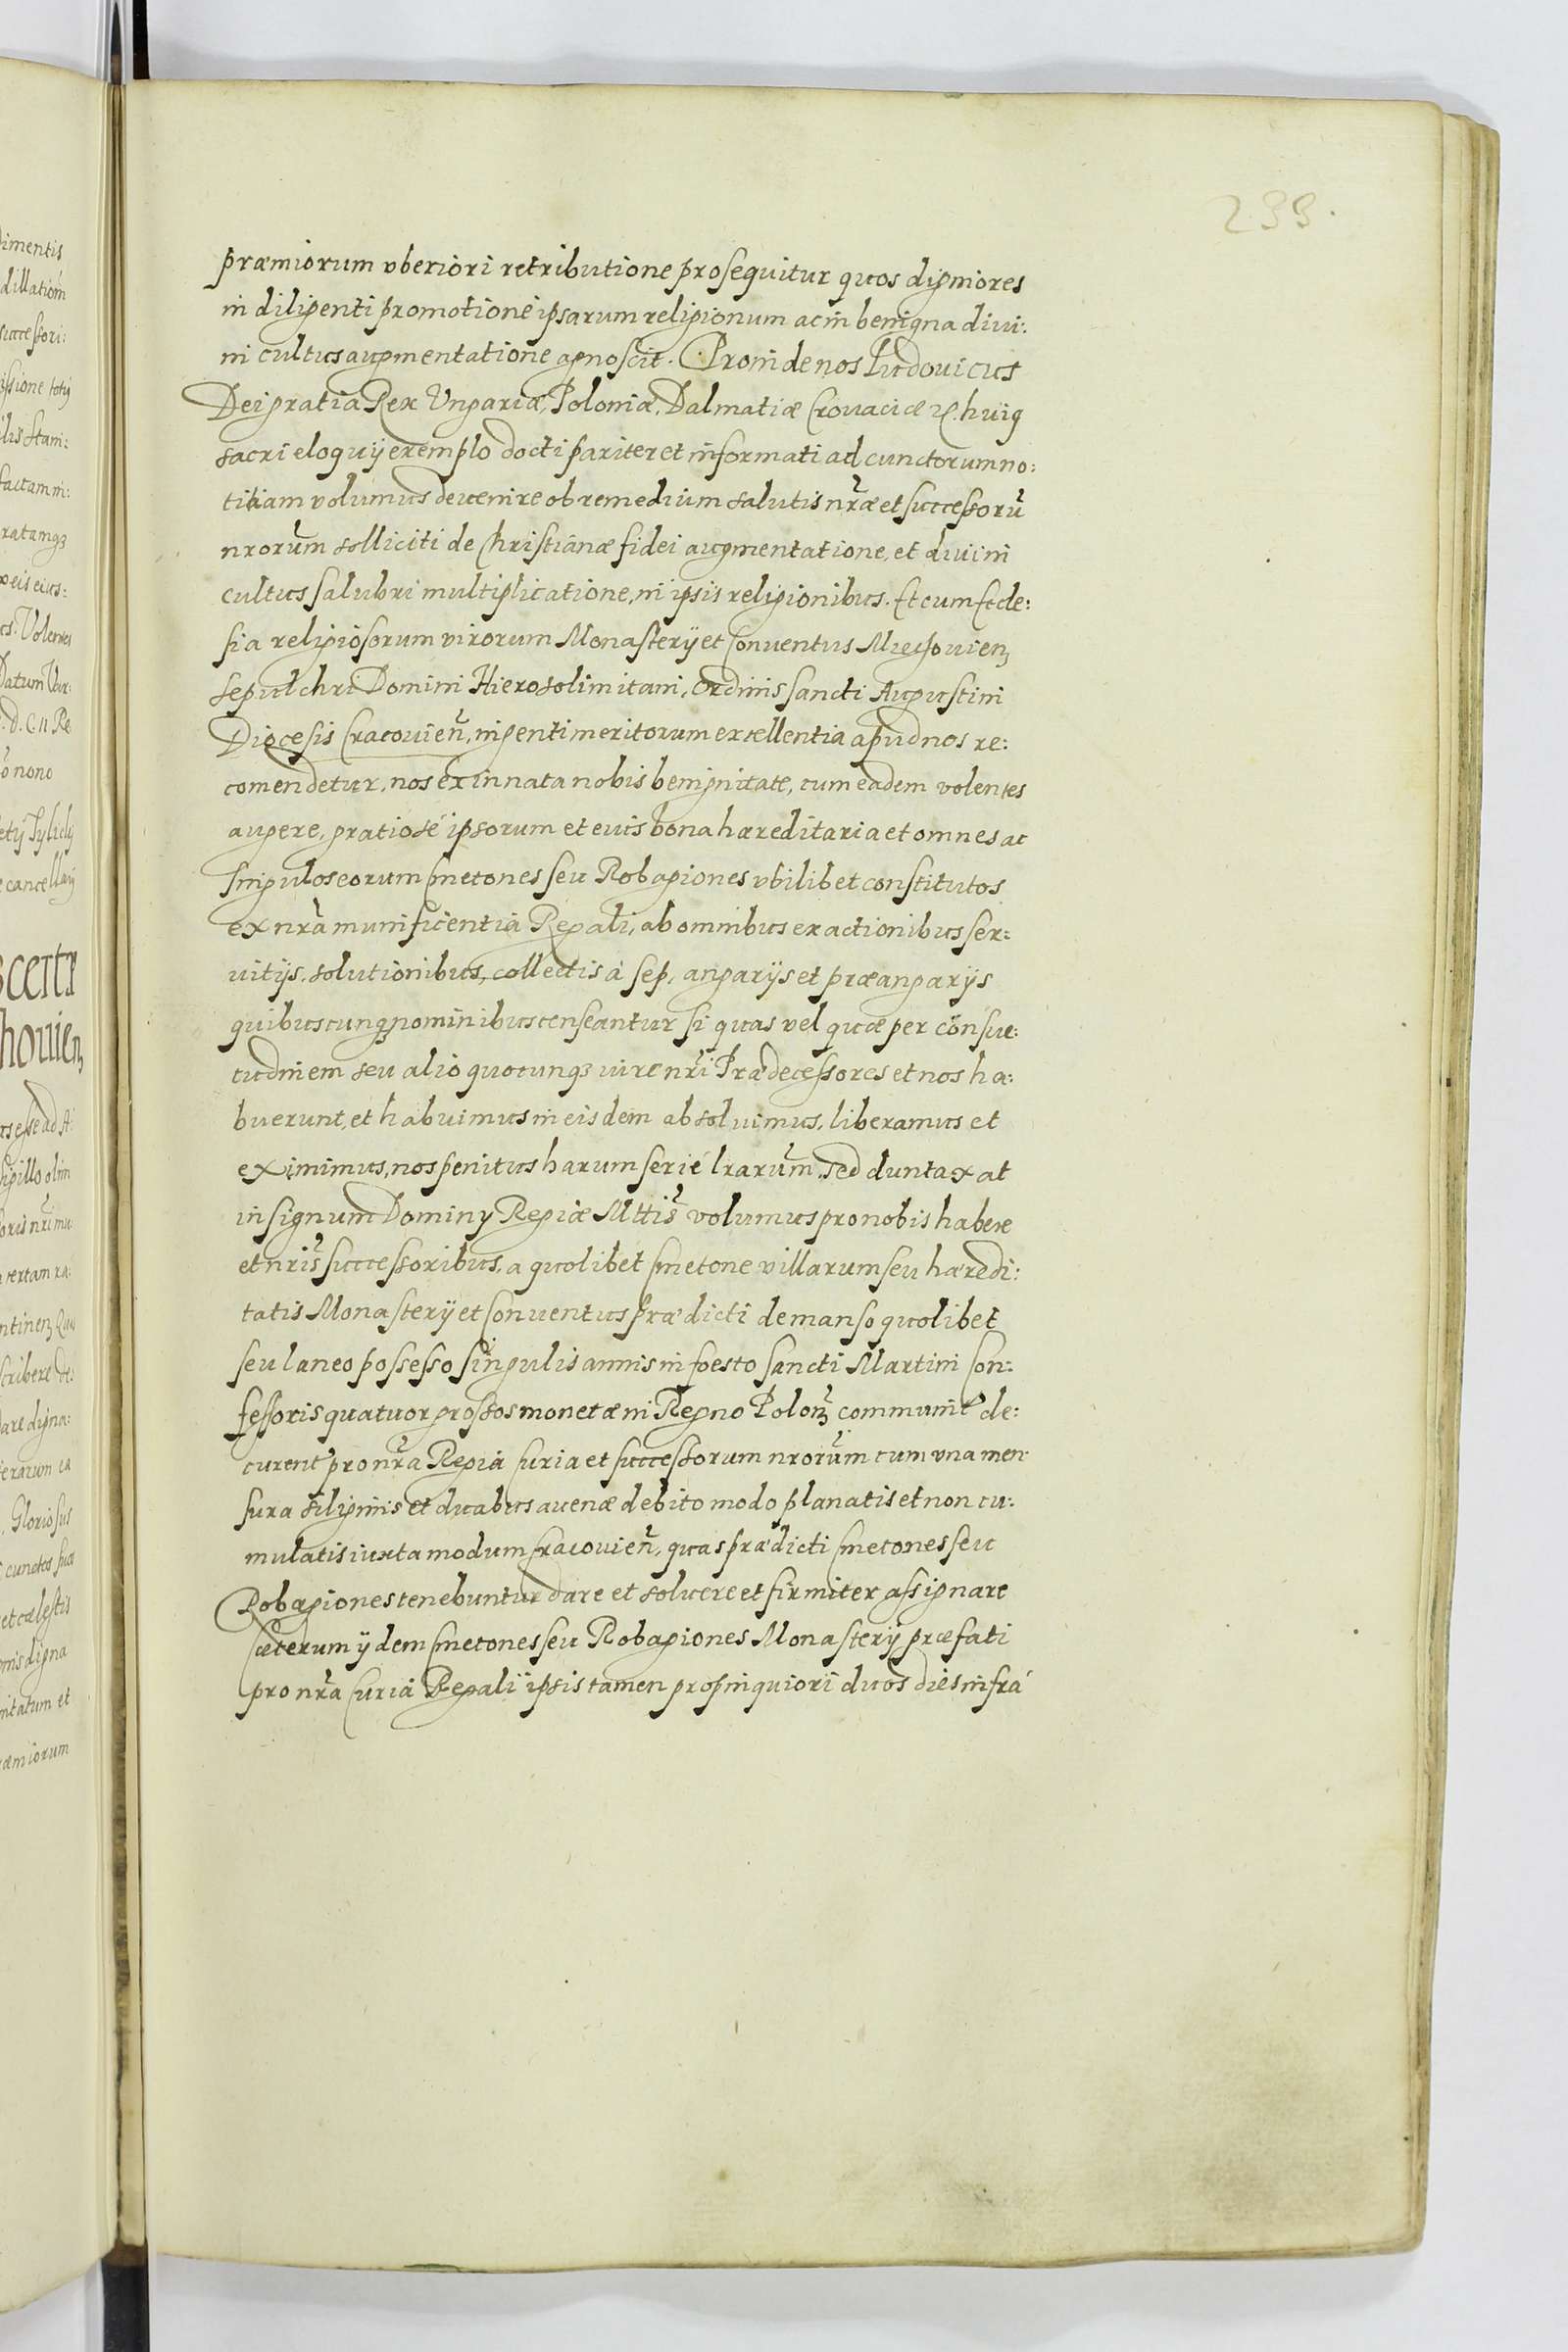 299.
præmiorum vberiori retributione prosequitur quos digniores
in diligenti promotione ipsarum religionum ac in benigna diui:
ni cultus augmentatione agnoscit. Proinde nos Ludouicus
Dei gratia Rex Vngariæ, Poloniæ, Dalmatiæ Crouaciæ &c. huiq
sacri eloquij exemplo docti pariter et informati ad cunctorum no:
titiam volumus deuenire ob remedium salutis nr̃æ et successorũ
nrorũm solliciti de Christianæ fidei augmentatione, et diuini
cultus salubri multiplicatione, in ipsis religionibus. Et cum Eccle:
sia religiosorum virorum Monasterij et Conuentus Miechouienʒ
sepulchri Domini Hierosolimitani, Ordinis sancti Augustini
Diocesis Cracouien̄, ingenti meritorum excellentia apud nos re:
comendetur, nos ex innata nobis benignitate, cum eadem volentes
augere, gratiosè ipsorum et euis bona hæreditaria et omnes ac
singulos eorum Cmetones seu Robagiones vbilibet constitutos
ex nr̃a munificentia Regali, ab omnibus exactionibus ser:
uitijs, solutionibus, collectis à sep, angarijs et præangarijs
quibuscunqʒ nominibus censeantur si quas vel quæ per consue:
tudinem seu alio quocunqʒ iure nr̃i Prædecessores et nos ha:
buerunt, et habuimus in eisdem absoluimus, liberamus et
eximimus, nos penitus harum seriè lrarũm, sed duntaxat
in signum Dominy Regiæ Mttis̃ volumus pro nobis habere
et nris̃ successoribus, a quolibet Cmetone villarum seu hæredi:
tatis Monasterij et Conuentus prædicti de manso quolibet
seu laneo possesso singulis annis in foesto sancti Martini Con:
fessoris quatuor grossos monetæ in Regno Polonʒ communit̃ de:
curent̃ pro nr̃a Regia Curia et successorum nrorũm cum vna men
sura siliginis et duabus auenæ debito modo planatis et non cu:
mulatis iuxta modum Cracouien̄, quas prædicti Cmetones seu
Robagiones tenebuntur dare et soluere et firmiter assignare
Cæterum ijdem Cmetones seu Robagiones Monasterij præfati
pro nr̃a Curia Regali ipsis tamen propinquiori duos dies infrà